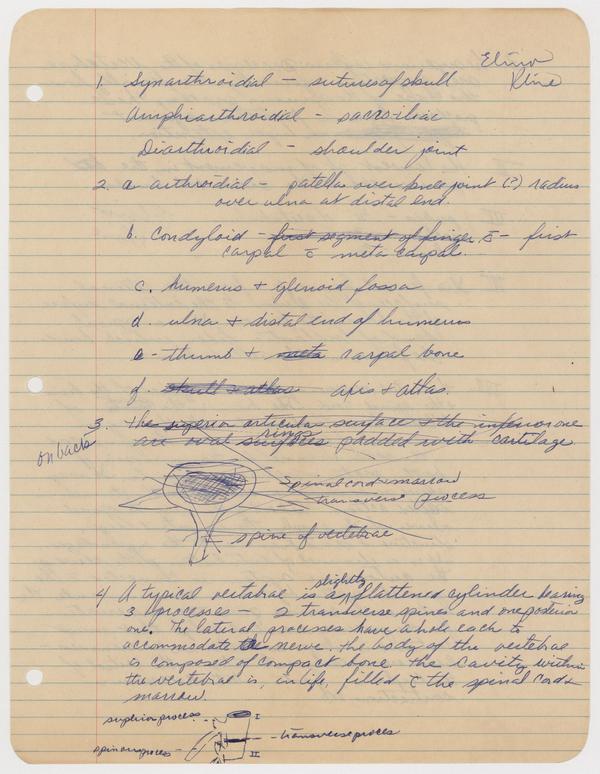 Elinor
Kline
1. Synarthroidial - sutures of skull
Amphiarthroidial - sacroiliac
Diarthroidial - shoulder joint
2. a arthroidial - patella over knee joint (?) radius
over ulna at distal end.
b. Condyloid - first segment of finger, c̄ - first
carpal c̄ meta carpal.
c. humerus + glenoid fossa
d. ulna + distal end of humerus
e - thumb + meta carpal bone
f. skull + atlas axis + atlas.
3. The superior articular surface + the inferior one
are oval surfaces rings padded with cartilage.
on back
Spinal cord + marrow
transverse process
spine of vertebrae
4 A typical vertebrae is a slightly flattened cylinder bearing
3 processes - 2 transverse spines and one posterior
one. The lateral processes have a hole each to
accommodate the nerve. The body of the vertebrae
is composed of compact bone. The cavity within
the vertebral is, in life, filled c̄ the spinal cord +
marrow.
superior process
I
spinous process - - transverse process
II